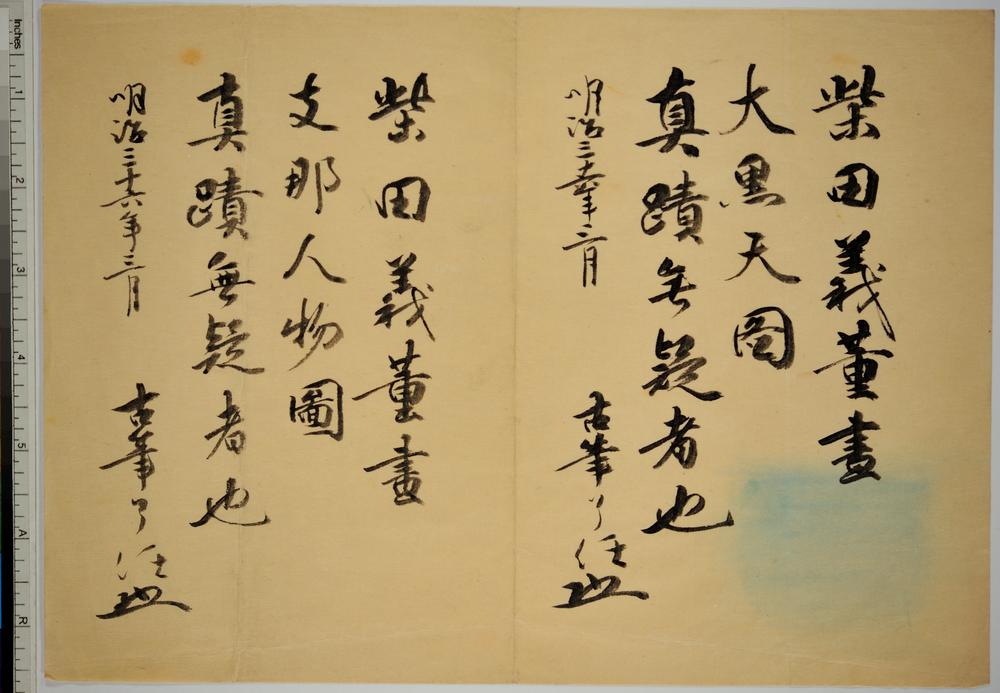 柴田義董畫
大黒天圖
真蹟無疑者也
明治三十六年二月
古筆了任
柴田義董畫
支那人物圖
真蹟無疑者也
明治三十六年三月
古筆了任
inches
1
2
3
4
5